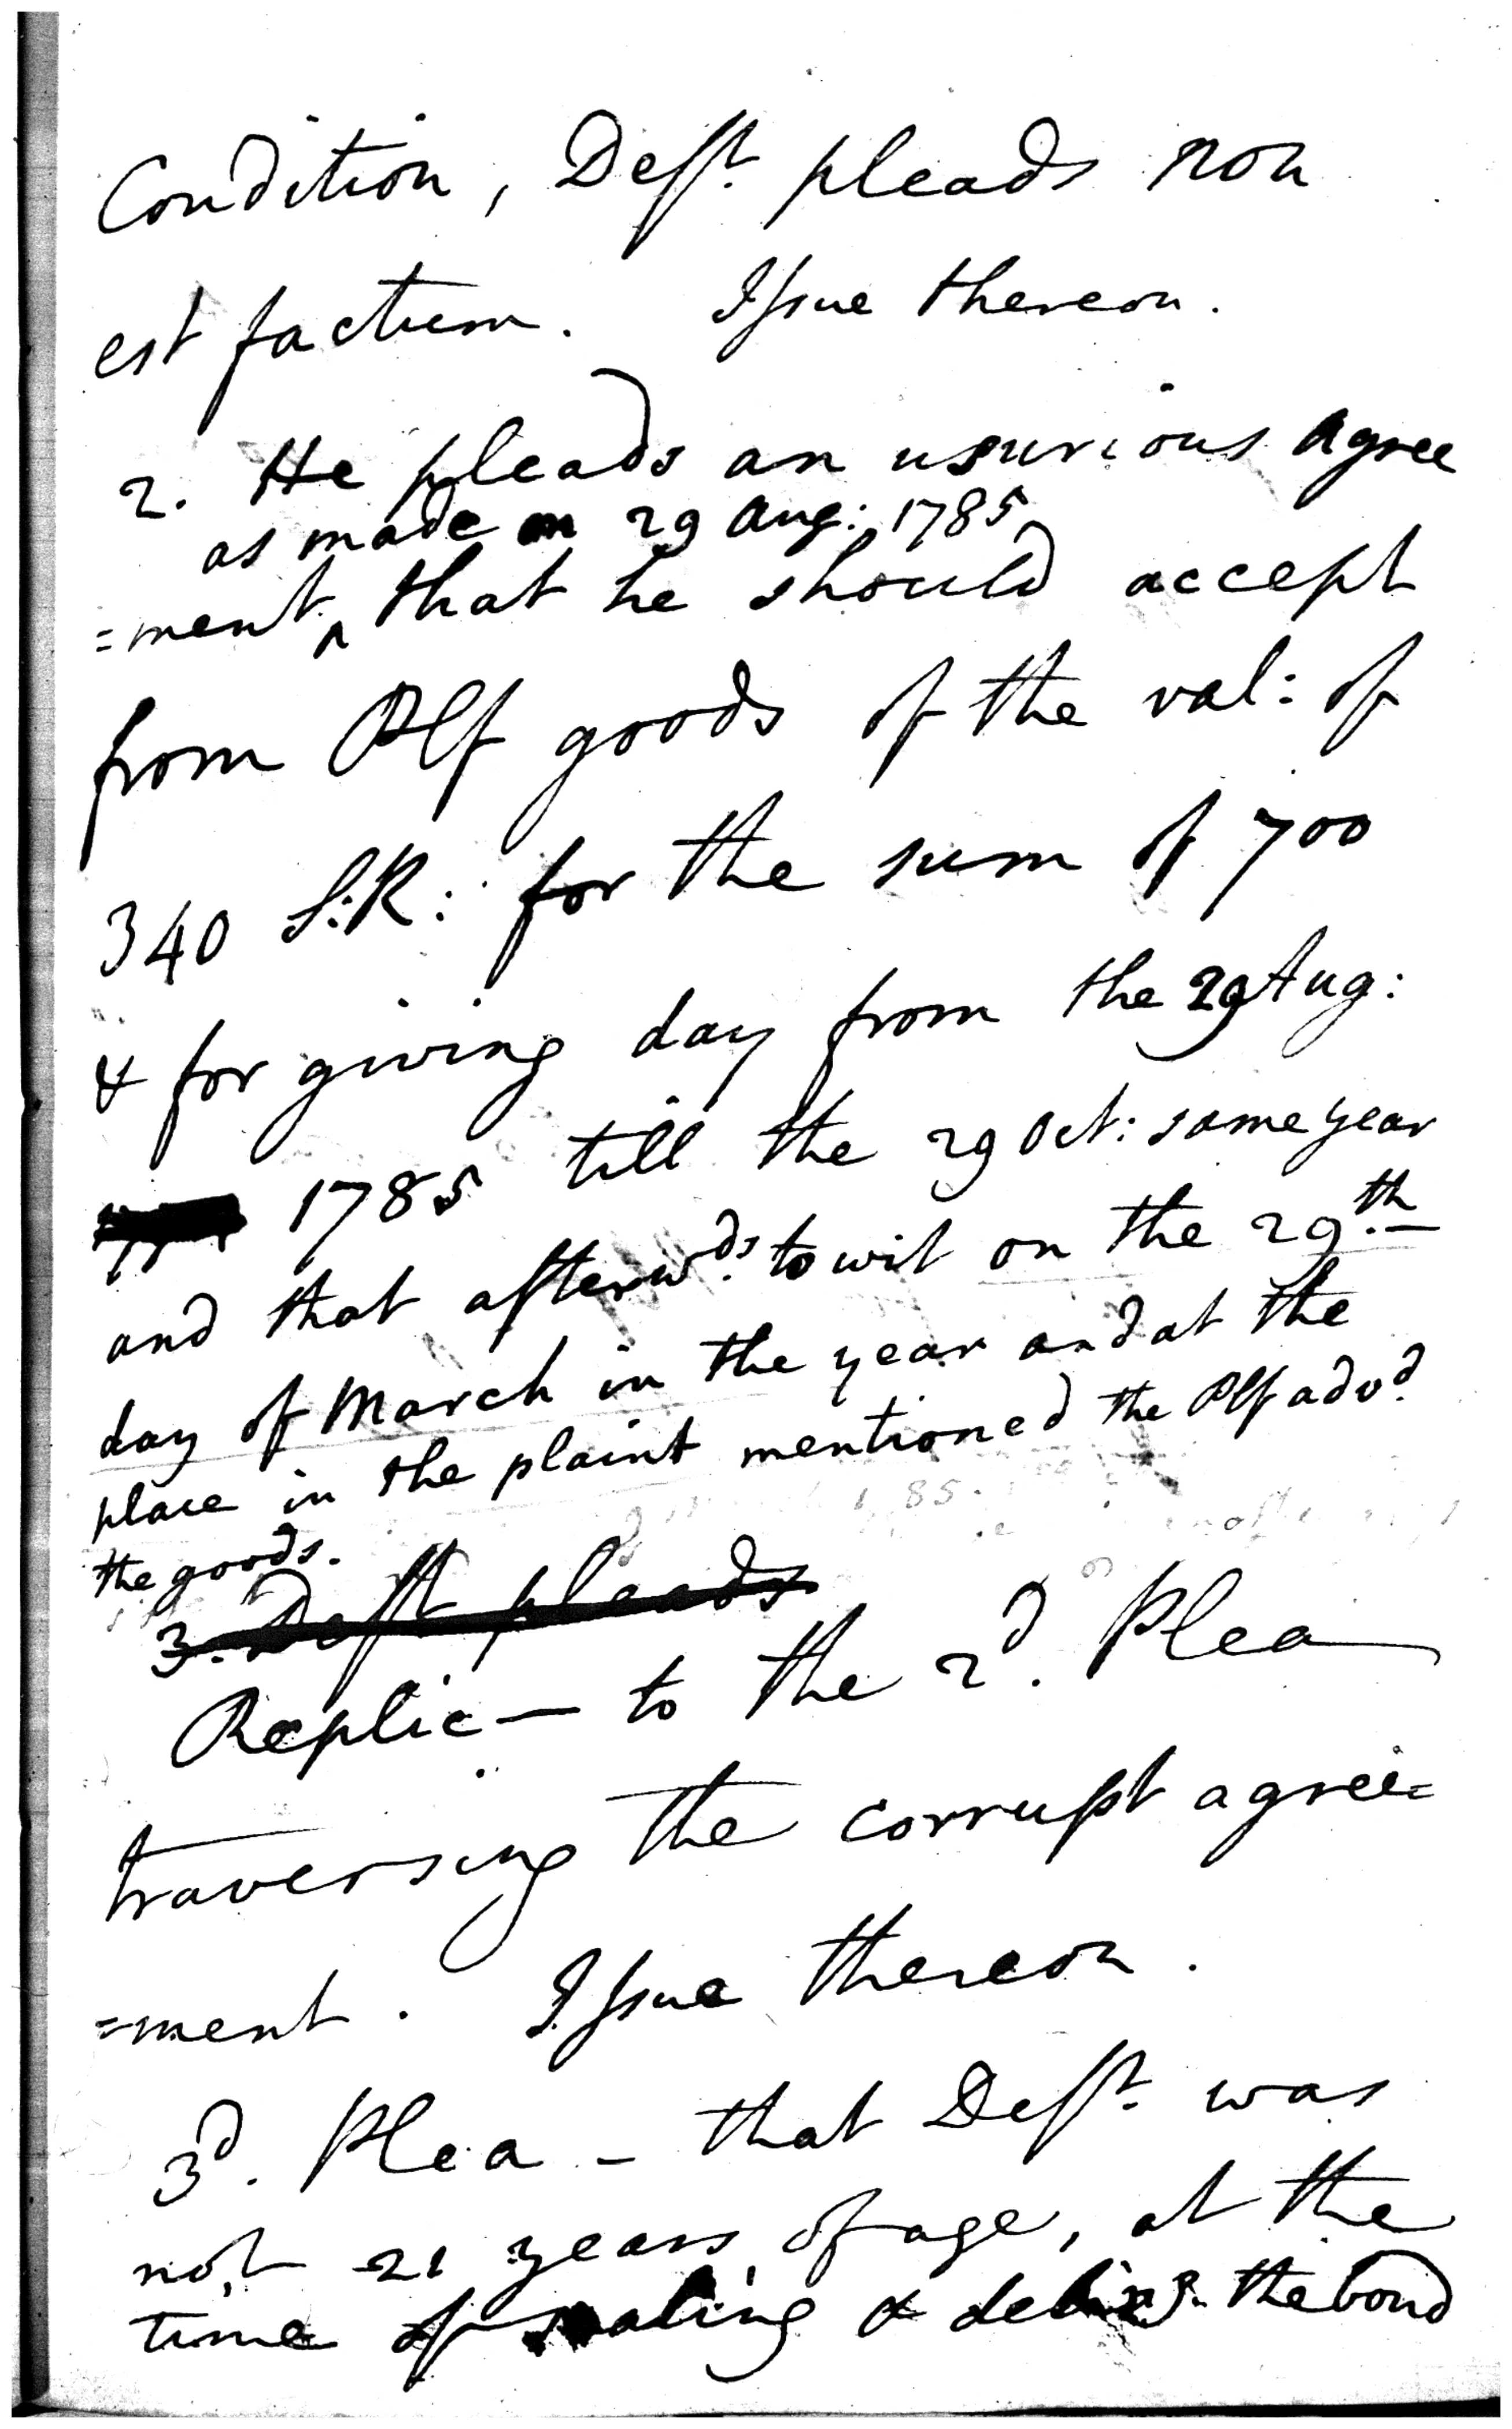 Condition, Deft. pleads non
est factum. Issue thereon.
2. He pleads an usurious agree
as made on 29 Aug: 1785
=ment ^ that he should accept
from Plf goods of the val: of
340 S:R: for the sum of 700
& for giving day from the 29 Aug:
1785 till the 29 Oct: same year
and that afterwds. to wit on the 29th
day of March in the year and at the
place in the plaint mentioned the Plf advd.
the goods.
3. Deft pleads
Replic— to the 2d. Plea
traversing the corrupt agree=
=ment. Issue thereon.
3d. Plea - that Deft. was
not 21 years of age, at the
time of sealing & delivg. the bond